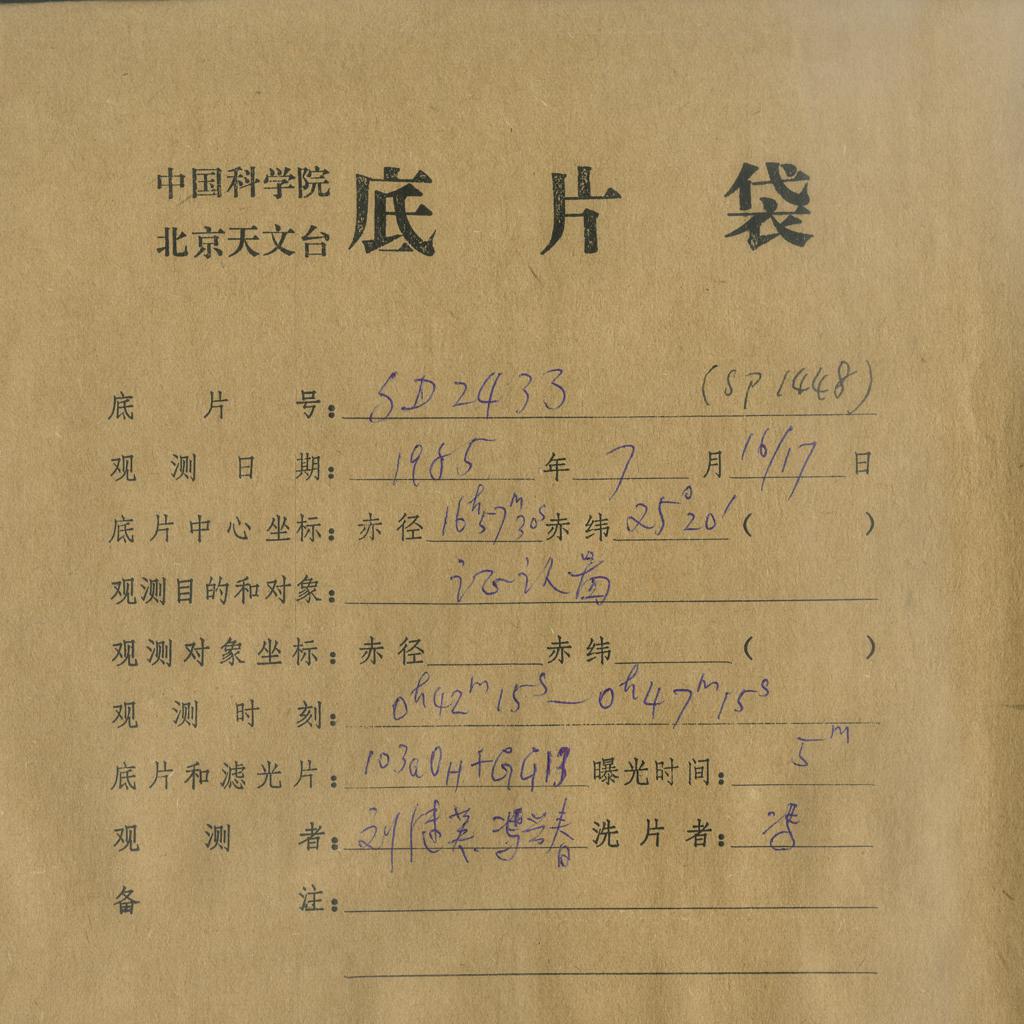 中国科学院
北京天文台
底片袋
底片号: SD2433 (SP1448)
观测日期: 1985年7月16/17日
底片中心坐标: 赤径16h57m30s赤纬25°20′( )
观测目的和对象: 证认图
观测对象坐标: 赤径 赤纬 ( )
观测时刻: 0h42m15s—0h47m15s
底片和滤光片: 103aOH+GG13 曝光时间: 5m
观测者: 刘健英 冯兴春 洗片者: 冯
备注: